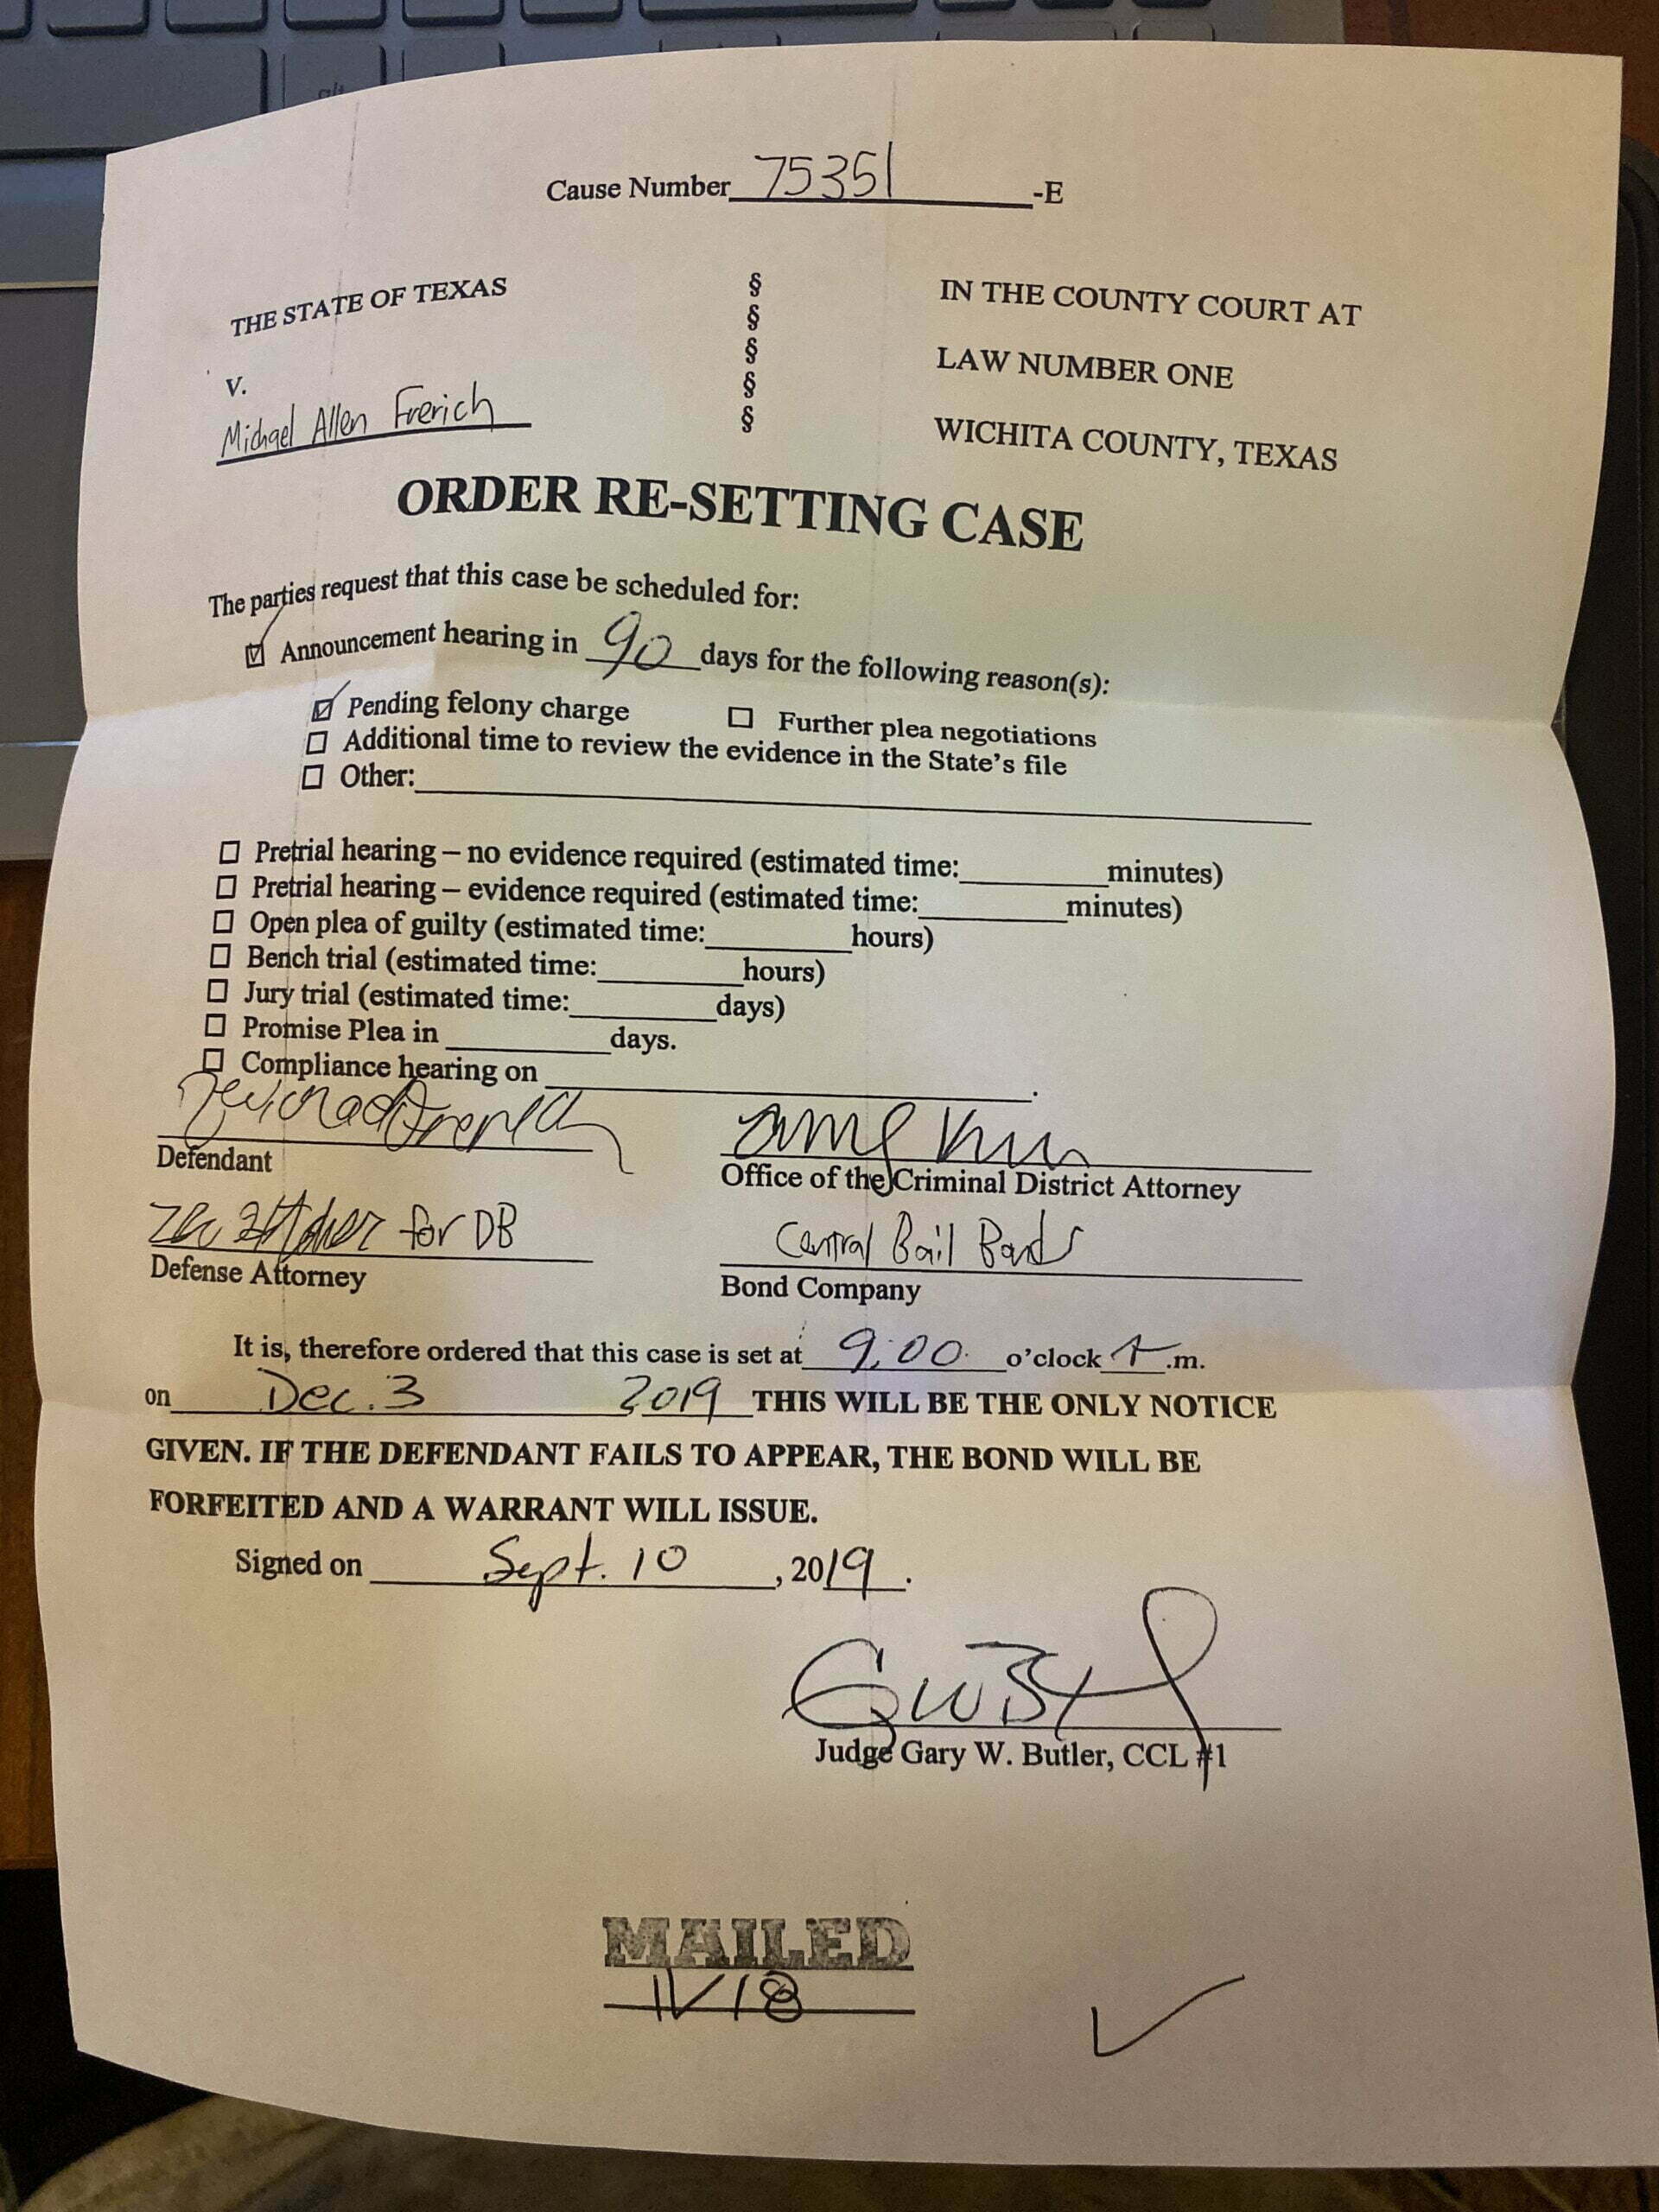 alt
Cause Number 75351 -E
THE STATE OF TEXAS § IN THE COUNTY COURT AT
§
V. § LAW NUMBER ONE
§
Michael Allen Frerich § WICHITA COUNTY, TEXAS
ORDER RE-SETTING CASE
The parties request that this case be scheduled for:
☑ Announcement hearing in 90 days for the following reason(s):
☑ Pending felony charge ☐ Further plea negotiations
☐ Additional time to review the evidence in the State's file
☐ Other:
☐ Pretrial hearing – no evidence required (estimated time: minutes)
☐ Pretrial hearing – evidence required (estimated time: minutes)
☐ Open plea of guilty (estimated time: hours)
☐ Bench trial (estimated time: hours)
☐ Jury trial (estimated time: days)
☐ Promise Plea in days.
☐ Compliance hearing on .
Defendant Office of the Criminal District Attorney
for DB Central Bail Bonds
Defense Attorney Bond Company
It is, therefore ordered that this case is set at 9:00 o'clock A.m.
on Dec. 3 2019 THIS WILL BE THE ONLY NOTICE
GIVEN. IF THE DEFENDANT FAILS TO APPEAR, THE BOND WILL BE
FORFEITED AND A WARRANT WILL ISSUE.
Signed on Sept. 10, 2019.
Judge Gary W. Butler, CCL #1
MAILED
11/18